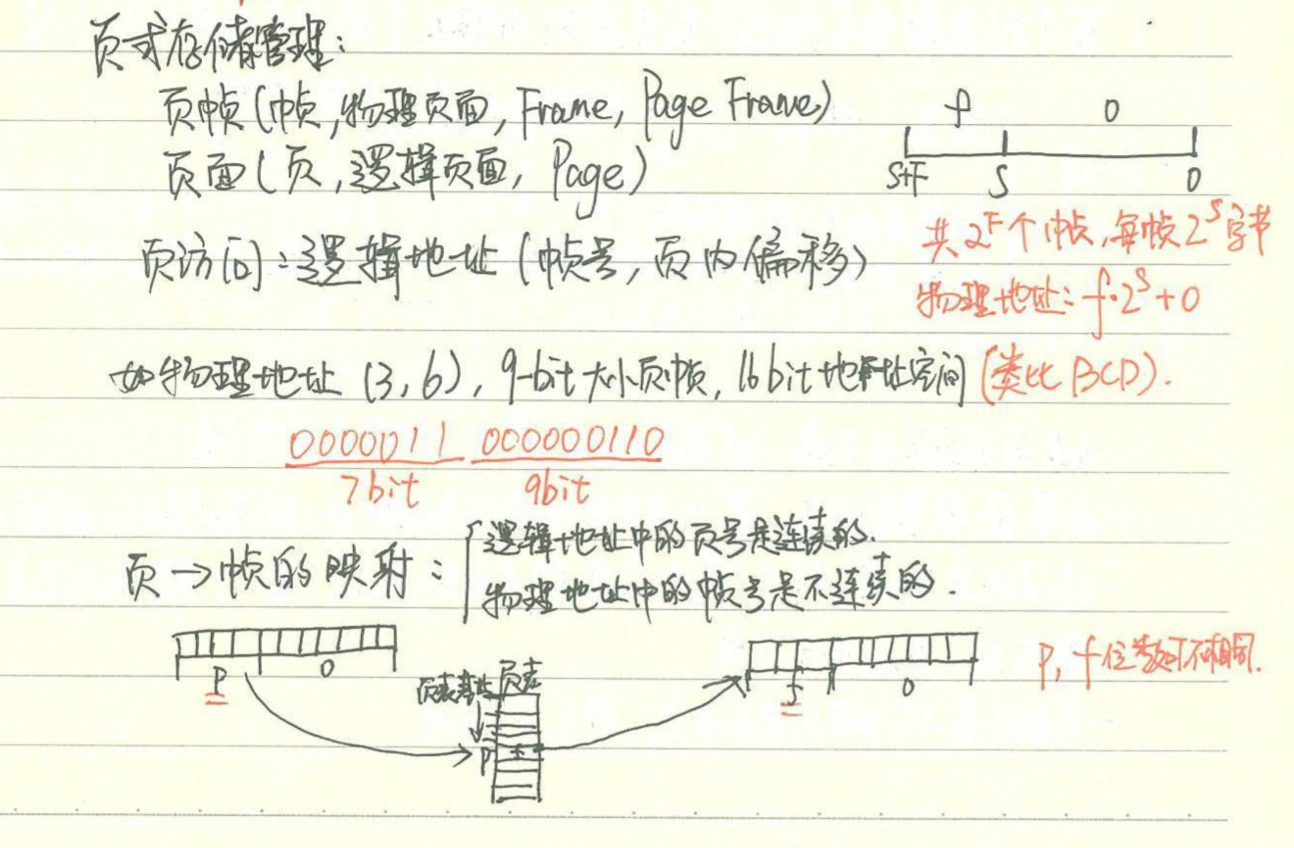 页式存储管理:
页帧(帧,物理页面, Frame, Page Frame)
f o
页面(页,逻辑页面, Page)
S+F S 0
共2^F个帧,每帧2^S字节
页访问:逻辑地址(帧号,页内偏移)
物理地址: f·2^S+o
如物理地址 (3,6), 9-bit大小页帧, 16bit地址空间 (类比BCD).
0000011 000000110
7bit 9bit
页→帧的映射:
逻辑地址中的页号是连续的.
物理地址中的帧号是不连续的.
p o
页表基址 页表
p f
f o
p, f位数可不相同.